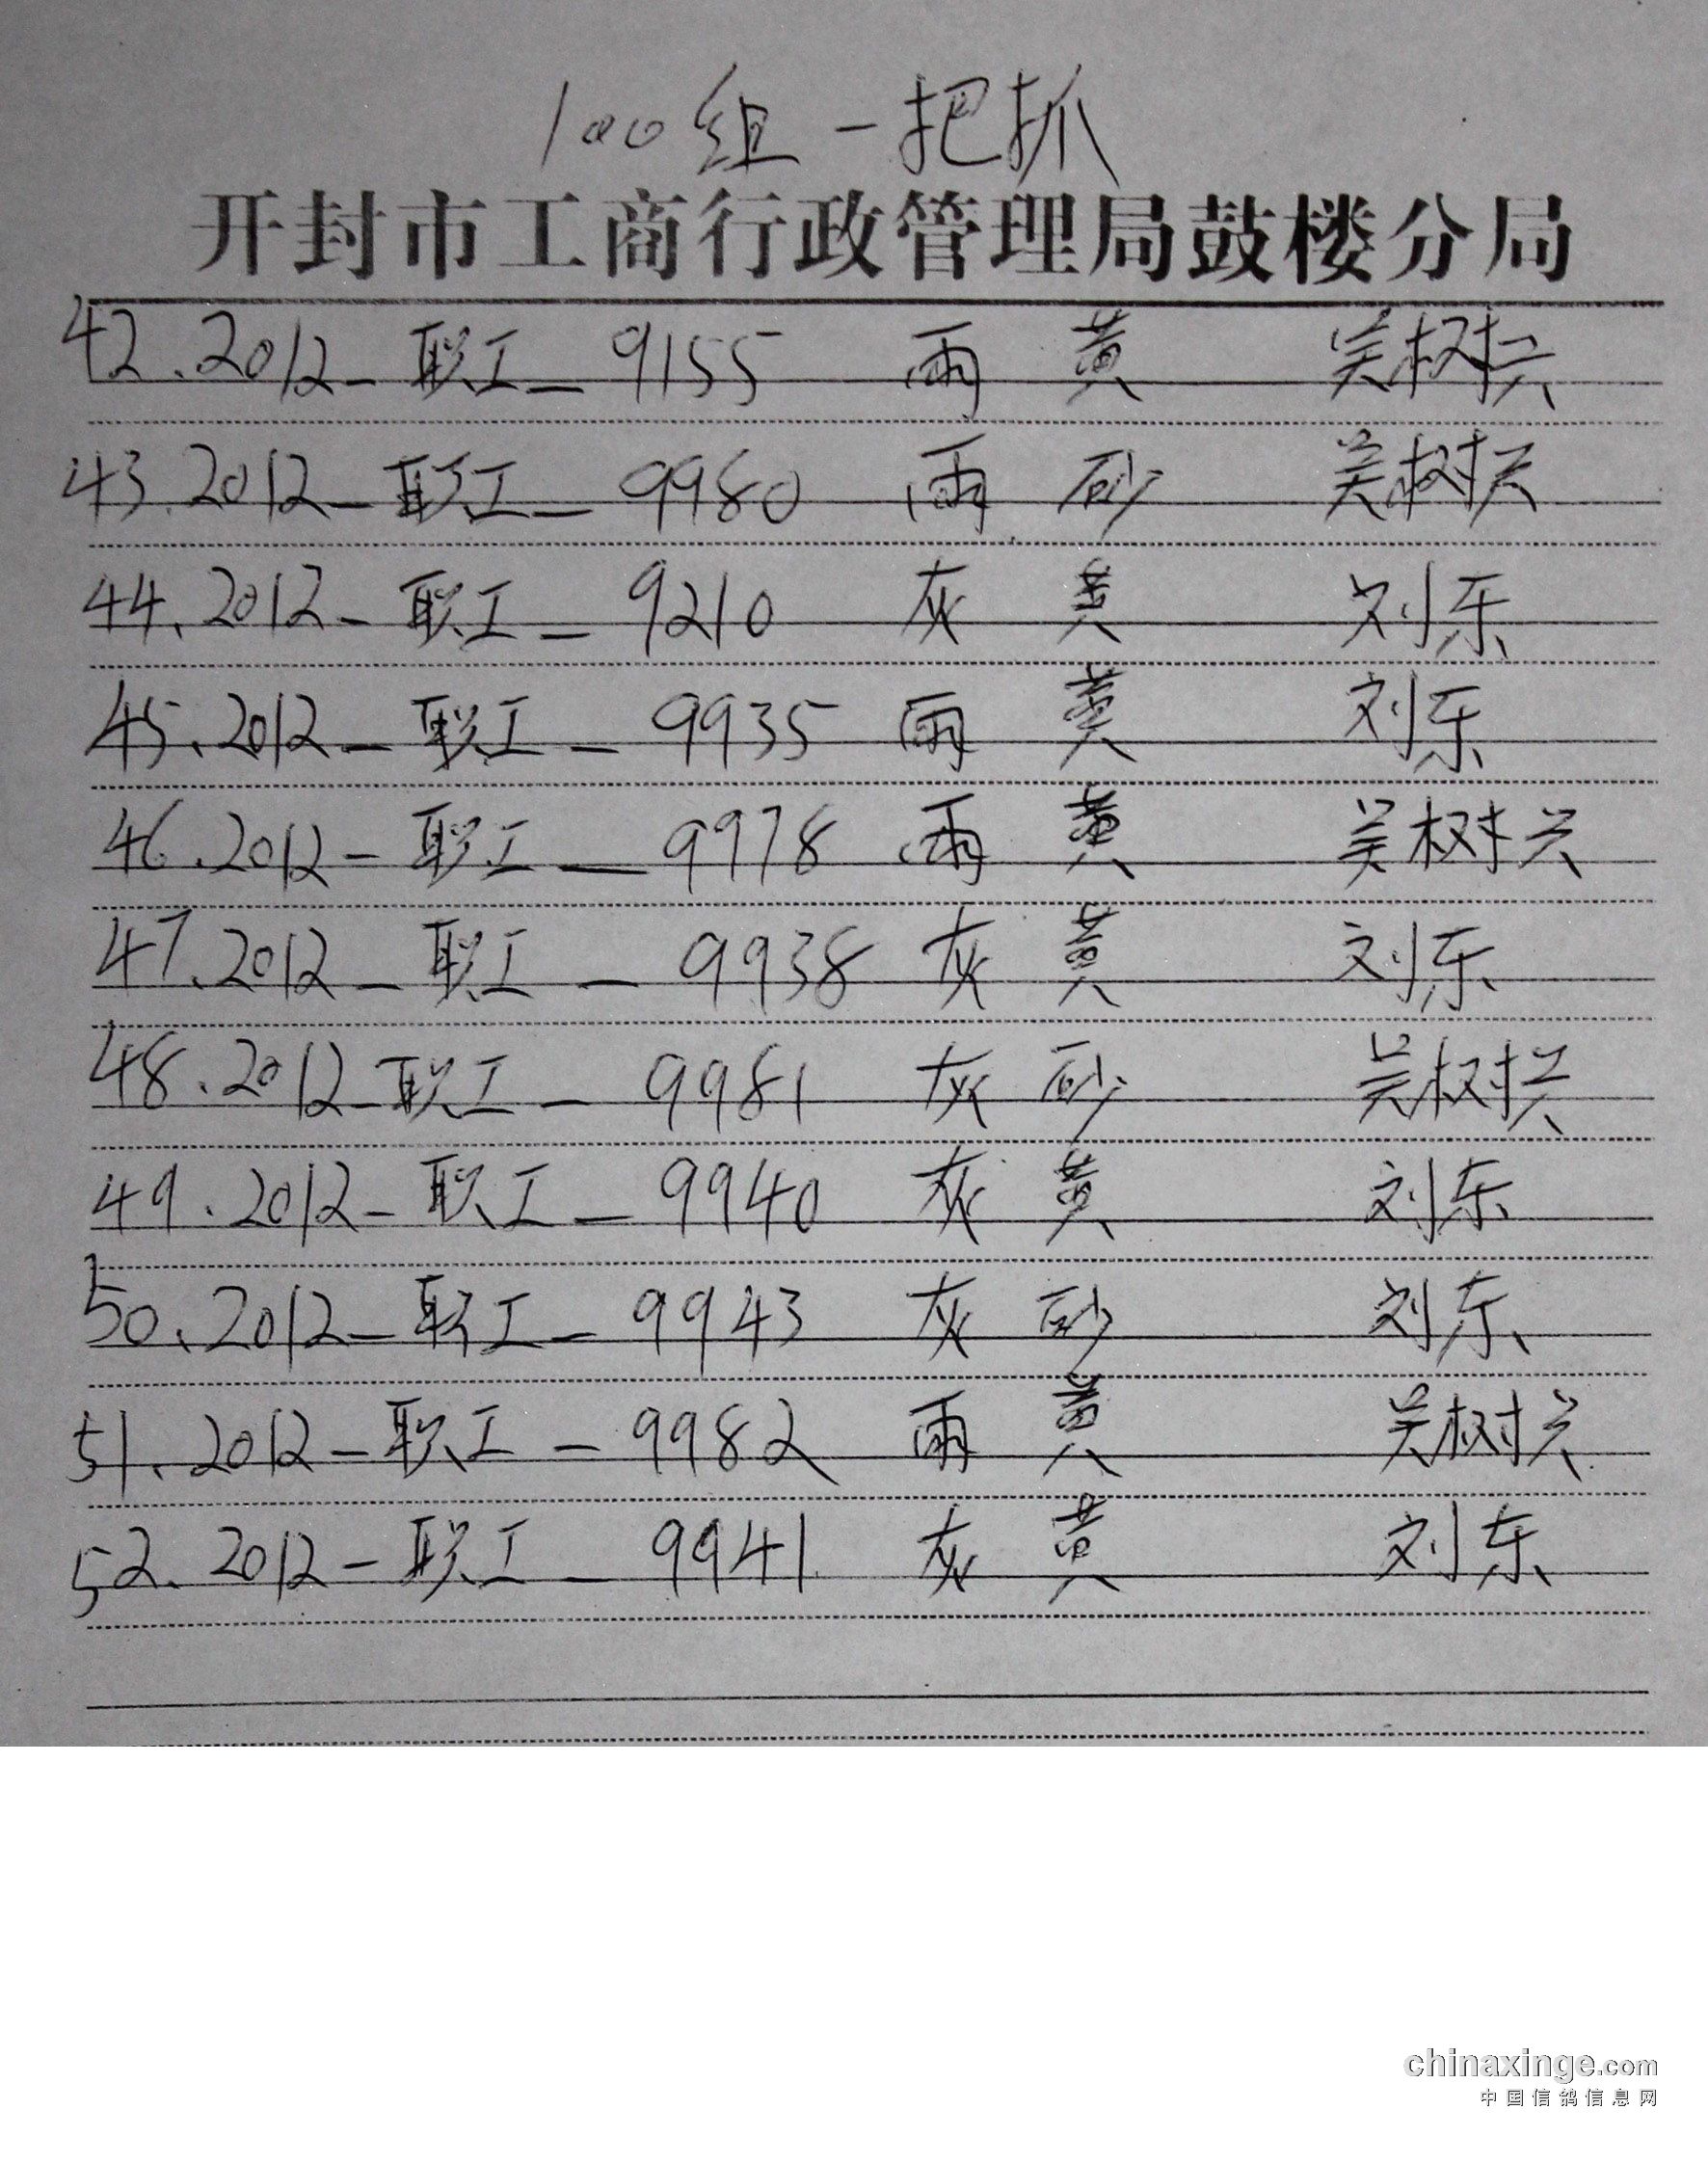 100组一把抓
开封市工商行政管理局鼓楼分局
42.2012-职工-9155 雨 黄 吴树兴
43.2012-职工-9980 雨 砂 吴树兴
44.2012-职工-9210 灰 黄 刘东
45.2012-职工-9935 雨 黄 刘东
46.2012-职工-9978 雨 黄 吴树兴
47.2012-职工-9938 灰 黄 刘东
48.2012-职工-9981 灰 砂 吴树兴
49.2012-职工-9940 灰 黄 刘东
50.2012-职工-9943 灰 砂 刘东
51.2012-职工-9982 雨 黄 吴树兴
52.2012-职工-9941 灰 黄 刘东
chinaxinge.com
中国信鸽信息网